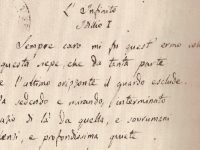 L'Infinito
Idilio I
Sempre caro mi fu quest'ermo col
questa sepe, che da tanta parte
l'ultimo orizzonte il guardo esclude.
a sedendo e mirando, interminato
azio di là da quella, e sovrumani
enzi, e profondissima quiete